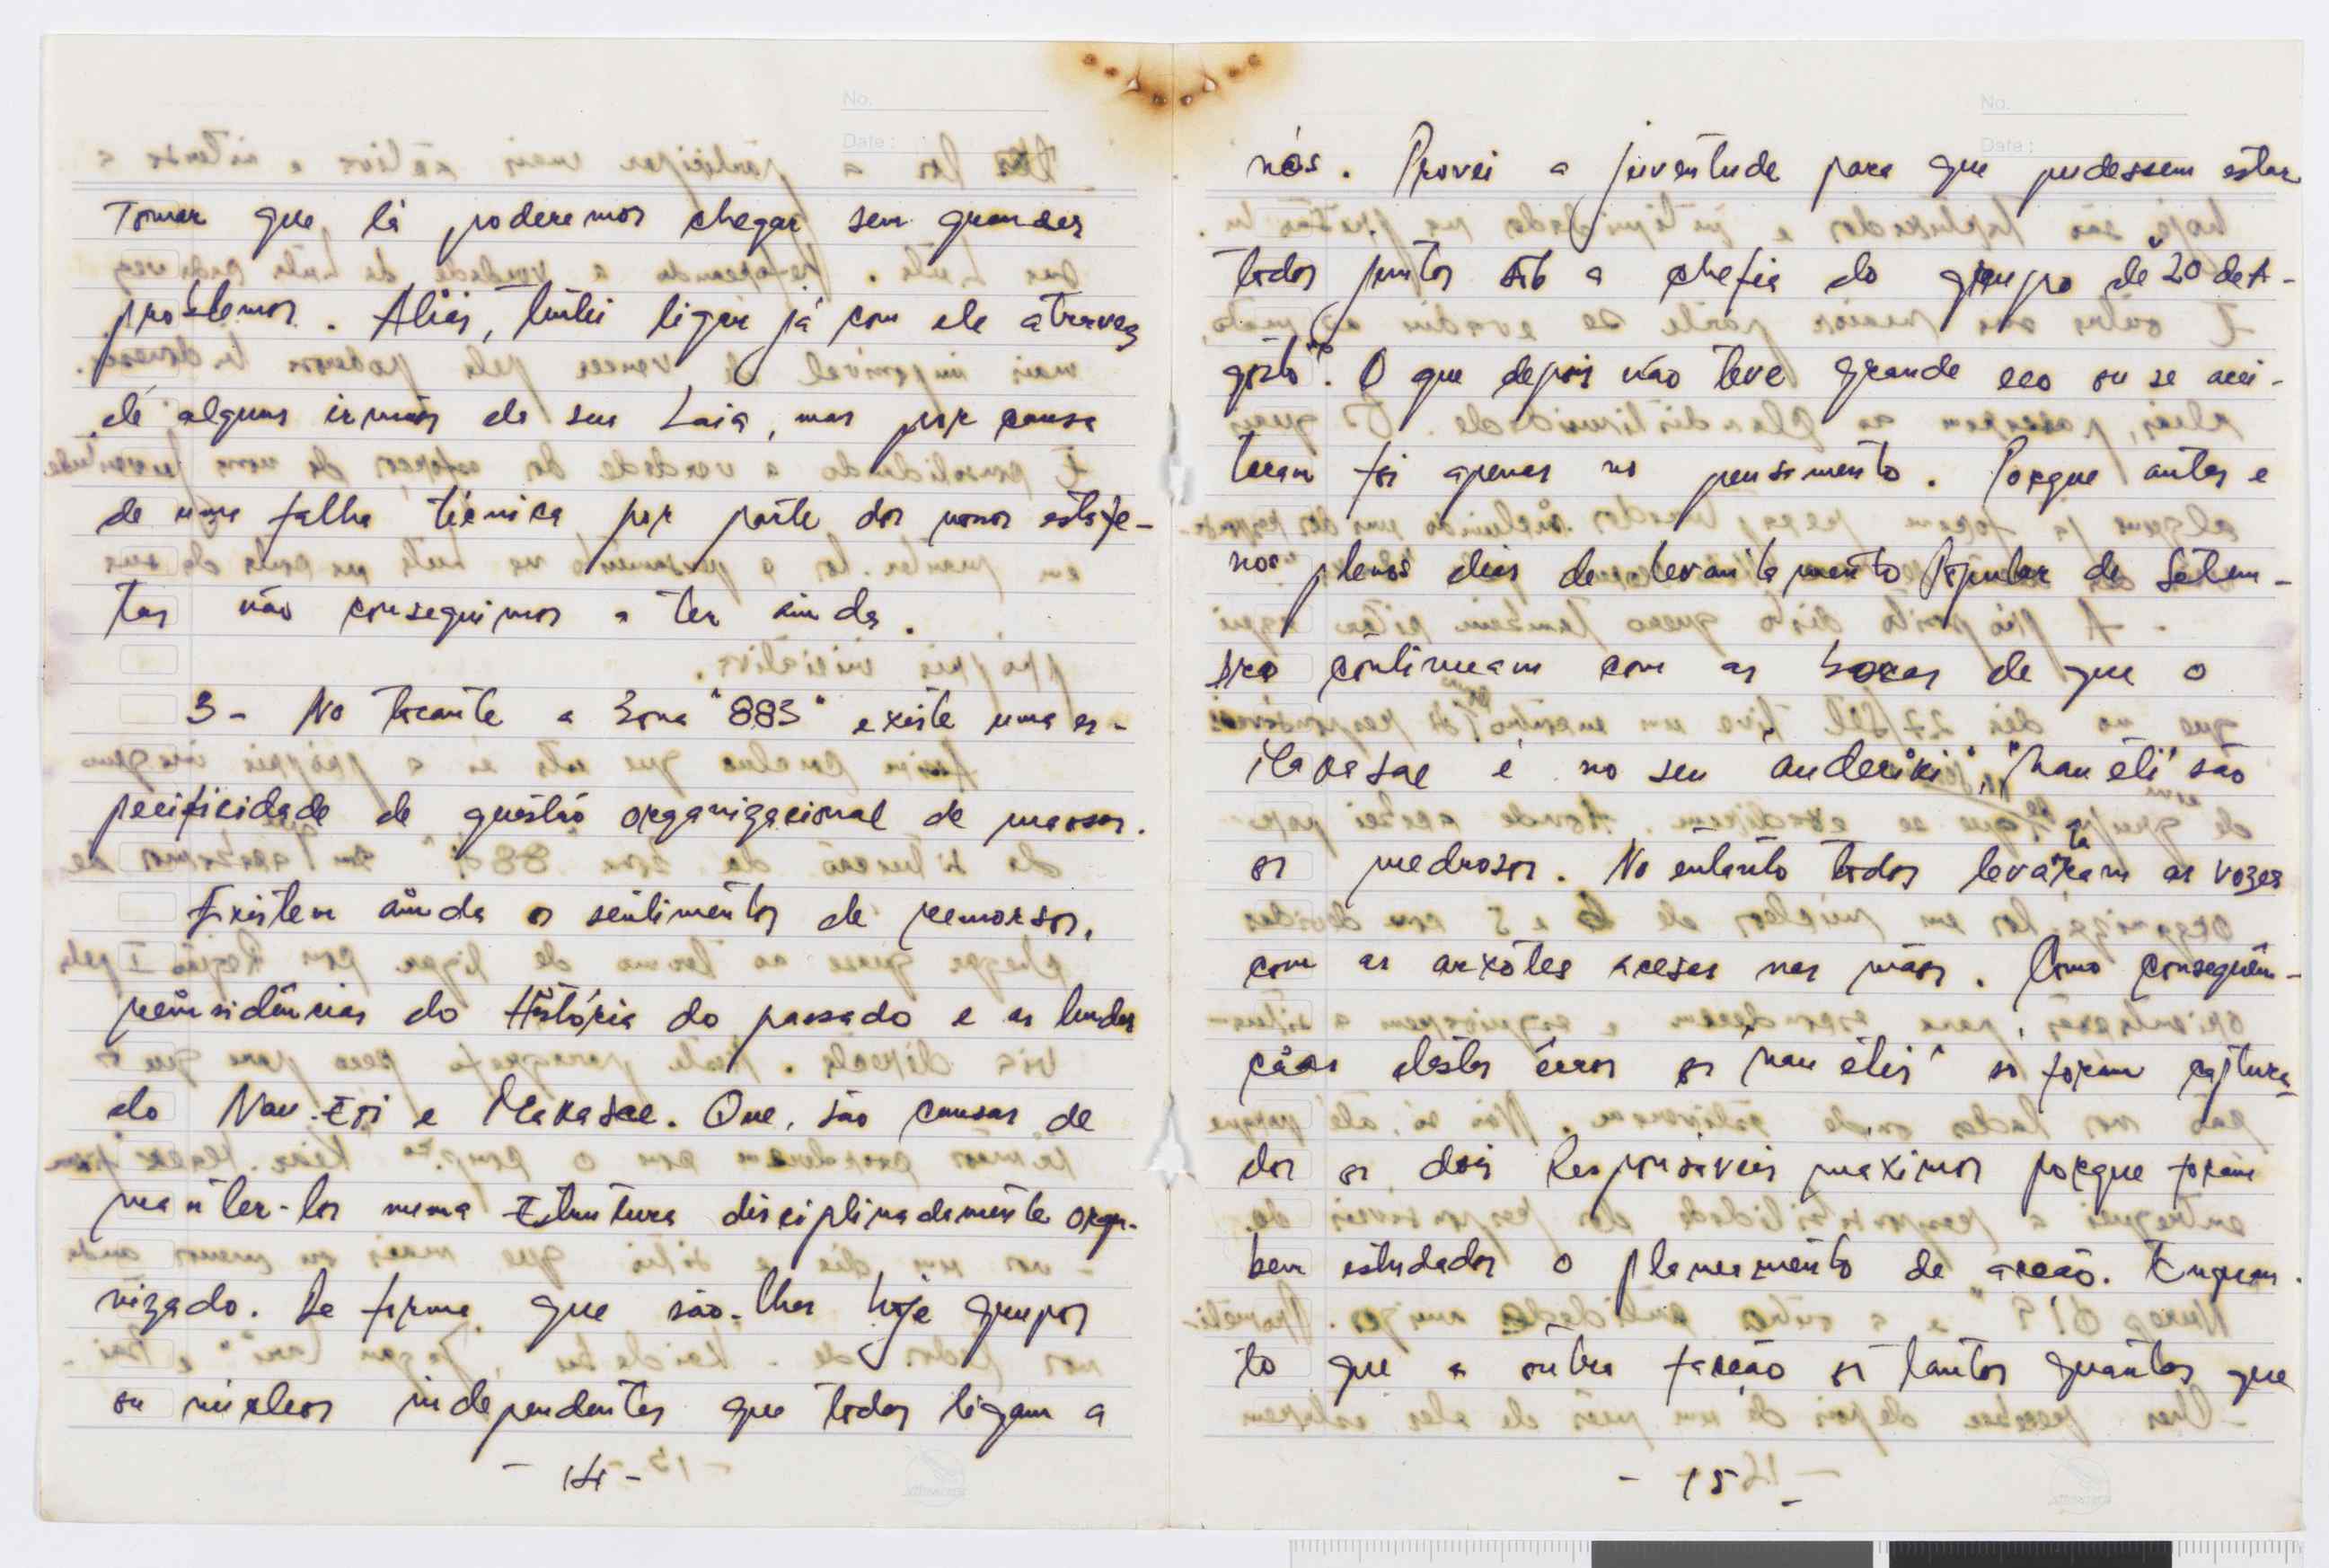 No.
Date :
tomar que lá poderemos chegar sem grandes
problemas. Aliás, tentei ligar já com ele através
de alguns irmãos da sua Laia, mas por causa
de uma falha técnica por parte dos nossos estafe-
tas não conseguimos a ter ainda.
3 - No tocante a Zona "883" existe uma es-
pecificidade de questão organizacional de massas.
Existem ainda os sentimentos de remorsos,
reinsidências do História do passado e as lendas
do Nau-Eti e Makasae. Que, são causas de
manter-los numa Estrutura disciplinadamente orga-
nizado. De forma que são-lhes hoje grupos
ou núcleos independentes que todos ligam a
- 14 -
No.
Date :
nós. Provei a juventude para que pudessem estar
todos juntos sob a chefia do grupo de "20 de A-
gosto". O que depois não teve grande eco ou se acei-
taram foi apenas no pensamento. Porque antes e
nos plenos dias de levantamento Popular de Setem-
bro continuam com as bocas de que o
Makasae é no seu anderiki, "nau éti" são
os medrosos. No entanto todos levatam as vozes
com as arxotes acesas nas mãos. Como consequên-
cias destes êrros os "nau étis" só foram captura-
dos os dois Responsaveis maximos porque foram
bem estudados o planeamento de acção. Enquan-
to que a outra facção os tantos quantos que
- 15 -